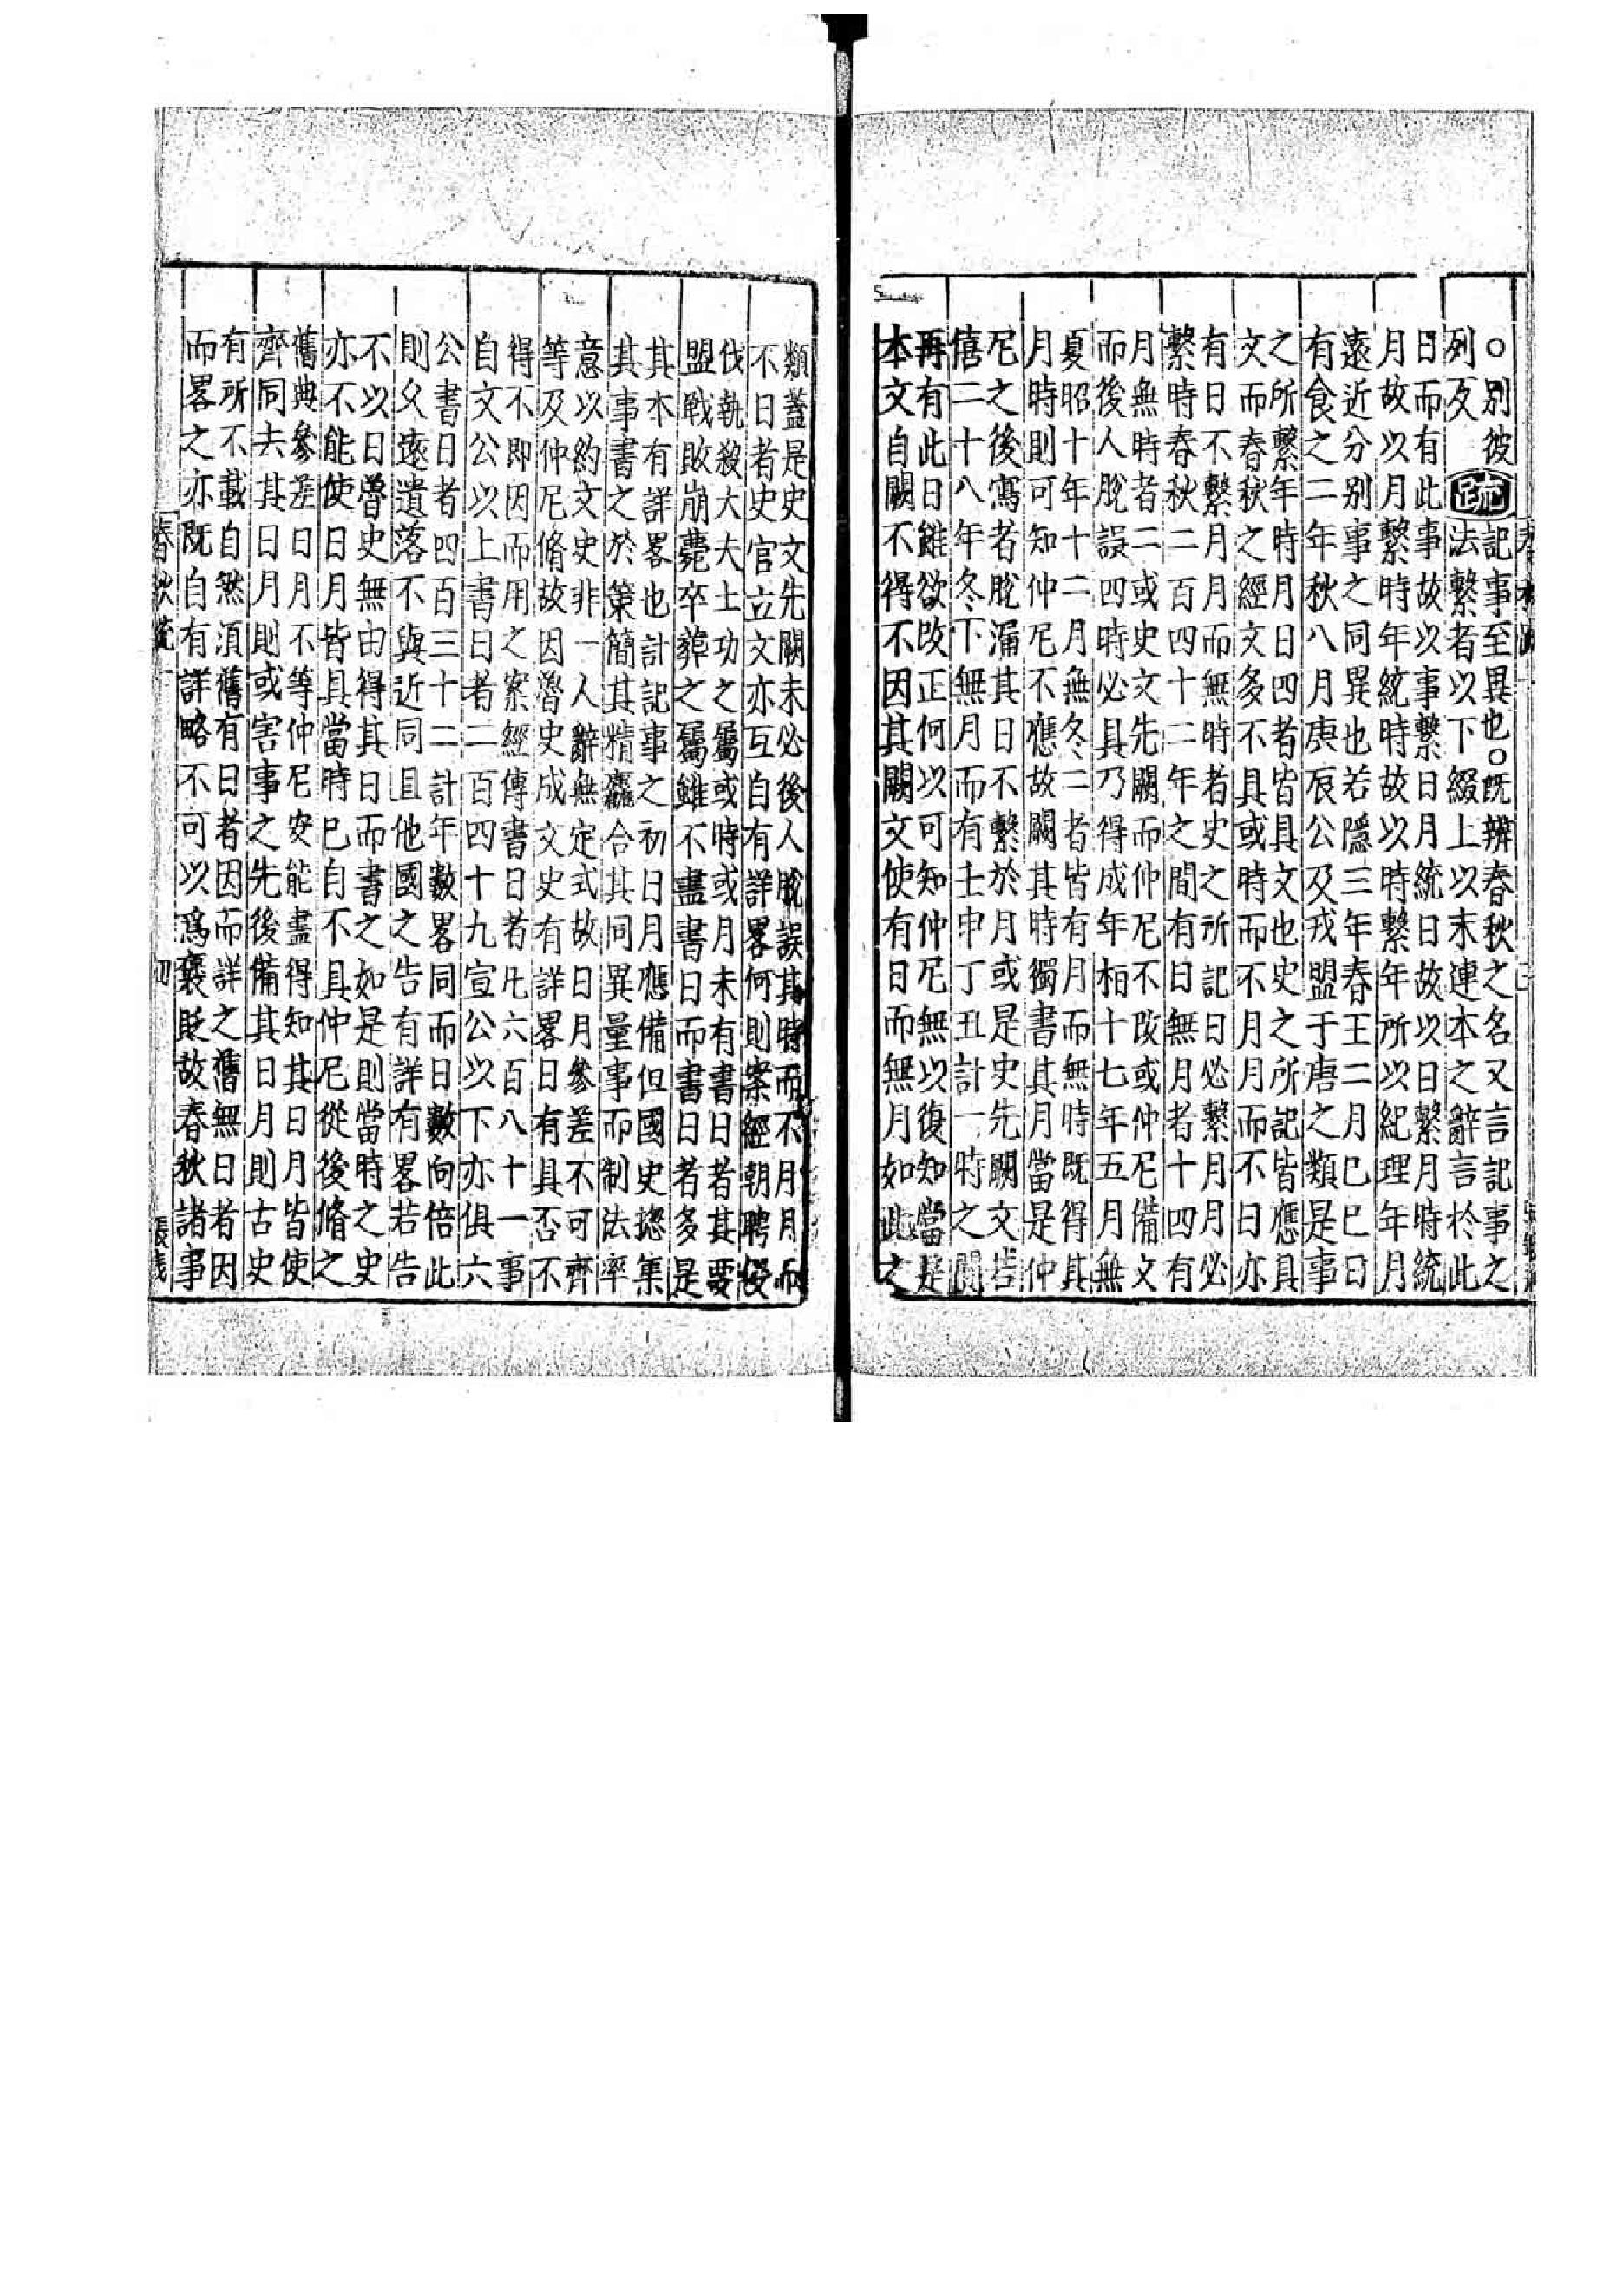 ○別彼列反
疏
記事至異也○既辨春秋之名又言記事之
法繫者以下綴上以末連本之辭言於此
日而有此事故以事繫日月統日故以日繫月時統
月故以月繫時年統時故以時繫年所以紀理年月
遠近分別事之同異也若隱三年春王二月己巳日
有食之二年秋八月庚辰公及戎盟于唐之類是事
之所繫年時月日四者皆具文也史之所記皆應具
文而春秋之經文多不具或時而不月月而不日亦
有日不繫月月而無時者史之所記日必繫月月必
繫時春秋二百四十二年之間有日無月者十四有
月無時者二或史文先闕而仲尼不改或仲尼備文
而後人脫誤四時必具乃得成年桓十七年五月無
夏昭十年十二月無冬二者皆有月而無時既得其
月時則可知仲尼不應故闕其時獨書其月當是仲
尼之後寫者脫漏其日不繫於月或是史先闕文若
僖二十八年冬下無月而有壬申丁丑計一時之間
再有此日雖欲改正何以可知仲尼無以復知當是
本文自闕不得不因其闕文使有日而無月如此之
類蓋是史文先闕未必後人脫誤其時而不月月而
不日者史官立文亦互自有詳畧何則案經朝聘侵
伐執殺大夫土功之屬或時或月未有書日者其要
盟戰敗崩薨卒葬之屬雖不盡書日而書日者多是
其本有詳畧也計記事之初日月應備但國史揔集
其事書之於策簡其精麤合其同異量事而制法率
意以約文史非一人辭無定式故日月參差不可齊
等及仲尼脩故因魯史成文史有詳畧日有具否不
得不即因而用之案經傳書日者凡六百八十一事
自文公以上書日者二百四十九宣公以下亦俱六
公書日者四百三十二計年數畧同而日數向倍此
則久遠遺落不與近同且他國之告有詳有畧若告
不以日魯史無由得其日而書之如是則當時之史
亦不能使日月皆具當時已自不具仲尼從後脩之
舊典參差日月不等仲尼安能盡得知其日月皆使
齊同夫其日月則或害事之先後備其日月則古史
有所不載自然須舊有日者因而詳之舊無日者因
而畧之亦既自有詳略不可以爲褒貶故春秋諸事